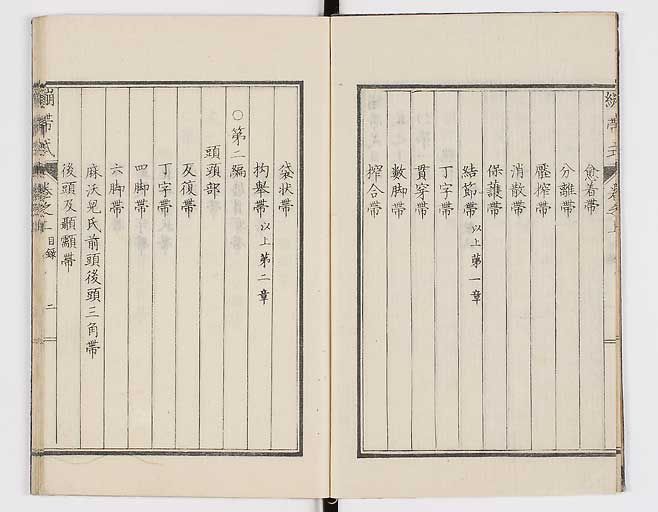 愈着帶
分離帶
壓搾帶
消散帶
保護帶
結節帶 以上第一章
丁字帶
貫穿帶
數脚帶
搾合帶
袋状帶
抅舉帶 以上第二章
○第二編
頭頭部
反復帶
丁字帶
四脚帶
六脚帶
麻沃兒氏前頭後頭三角帶
後頭及顳顬帶
繃帶式 卷之上 目録 二